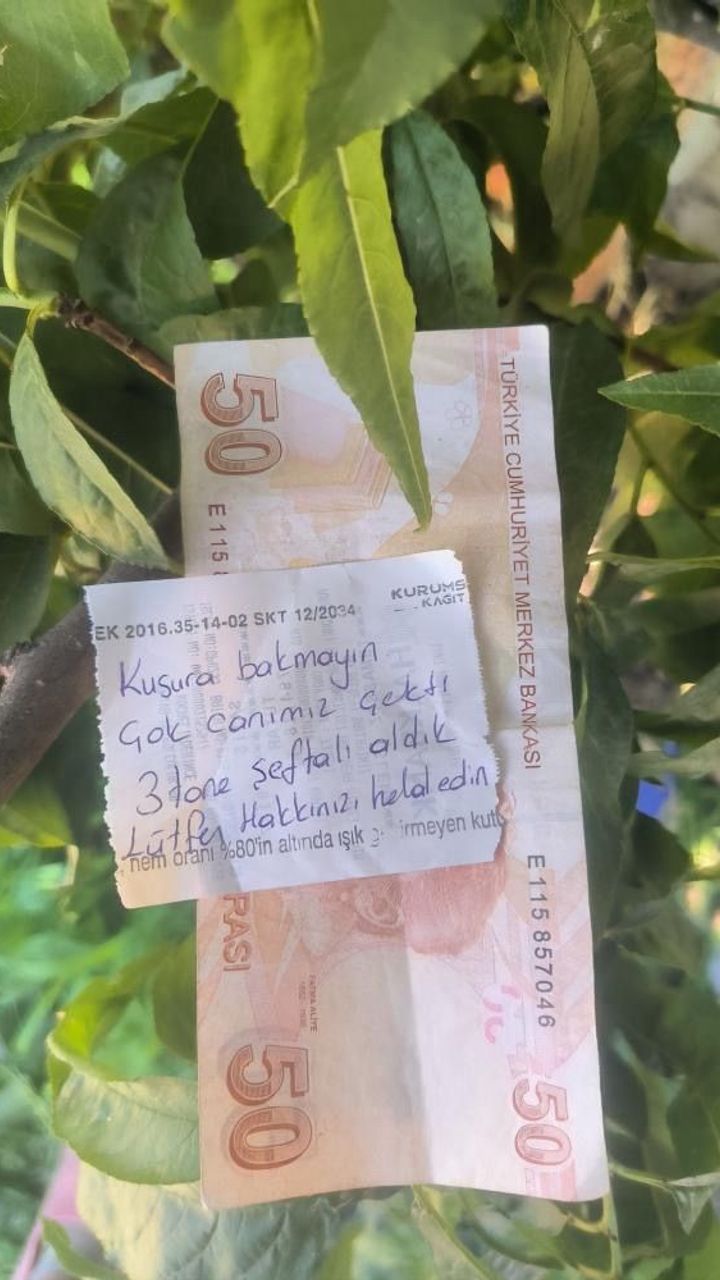 50
E 115 8
TÜRKİYE CUMHURİYET MERKEZ BANKASI
EK 2016.35-14-02 SKT 12/2034
KURUMS
KAĞIT
Kusura bakmayın
Çok canımız çekti
3 tane şeftali aldık
Lütfen Hakkınızı helal edin
nem oranı %80'in altında ışık irmeyen kutu
RASI
E 115 857046
FATMA ALİYE
50
50